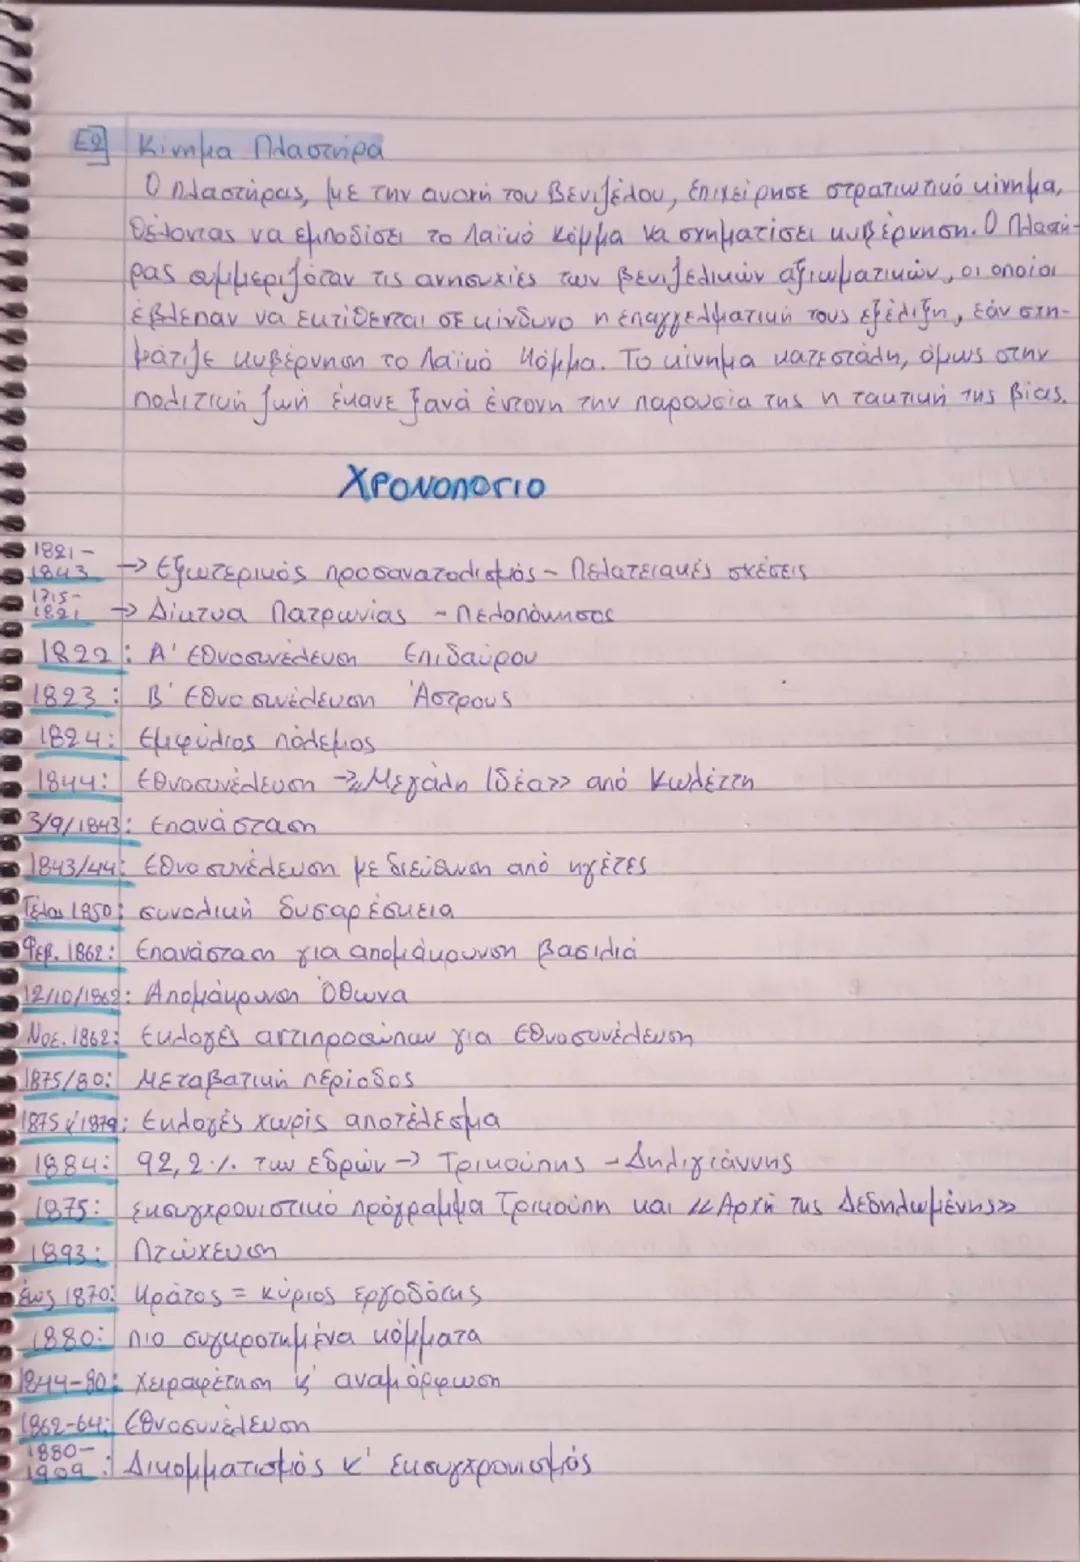 Ε2 Κίνημα Πλαστήρα
Ο Πλαστήρας, με την ανοχή του Βενιζέλου, επιχείρησε στρατιωτικό κίνημα,
θέλοντας να εμποδίσει το Λαϊκό Κόμμα να σχηματίσει κυβέρνηση. Ο Πλαστή-
ρας συμμεριζόταν τις ανησυχίες των βενιζελικών αξιωματικών, οι οποίοι
έβλεπαν να εκτίθεται σε κίνδυνο η επαγγελματική τους εξέλιξη, εάν σχη-
μάτιζε κυβέρνηση το Λαϊκό Κόμμα. Το κίνημα κατεστάλη, όμως στην
πολιτική ζωή έκανε ξανά έντονη την παρουσία της η τακτική της βίας.
ΧΡΟΝΟΛΟΓΙΟ
1821-
1843 → Εξωτερικός προσανατολισμός - Πελατειακές σχέσεις
1715-
1821 → Δίκτυα Πατρωνίας - Πελοπόννησος
1822: Α' Εθνοσυνέλευση Επιδαύρου
1823: Β' Εθνοσυνέλευση Άστρους
1824: Εμφύλιος πόλεμος
1844: Εθνοσυνέλευση → «Μεγάλη Ιδέα» από Κωλέττη
3/9/1843: Επανάσταση
1843/44: Εθνοσυνέλευση με διεύθυνση από ηγέτες
Τέλος 1850: συνολική δυσαρέσκεια
Φεβ. 1862: Επανάσταση για απομάκρυνση βασιλιά
12/10/1862: Απομάκρυνση Όθωνα
Νοε. 1862: Εκλογές αντιπροσώπων για Εθνοσυνέλευση
1875/80: Μεταβατική περίοδος
1875 κ' 1879: Εκλογές χωρίς αποτέλεσμα
1884: 92,2 % των εδρών → Τρικούπης - Δηλιγιάννης
1875: Εκσυγχρονιστικό πρόγραμμα Τρικούπη και «Αρχή της Δεδηλωμένης»
1893: Πτώχευση
έως 1870: Κράτος = κύριος εργοδότης
1880: πιο συγκροτημένα κόμματα
1844-80: Χειραφέτηση κ' αναμόρφωση
1862-64: Εθνοσυνέλευση
1880-
1909: Δικομματισμός κ' Εκσυγχρονισμός